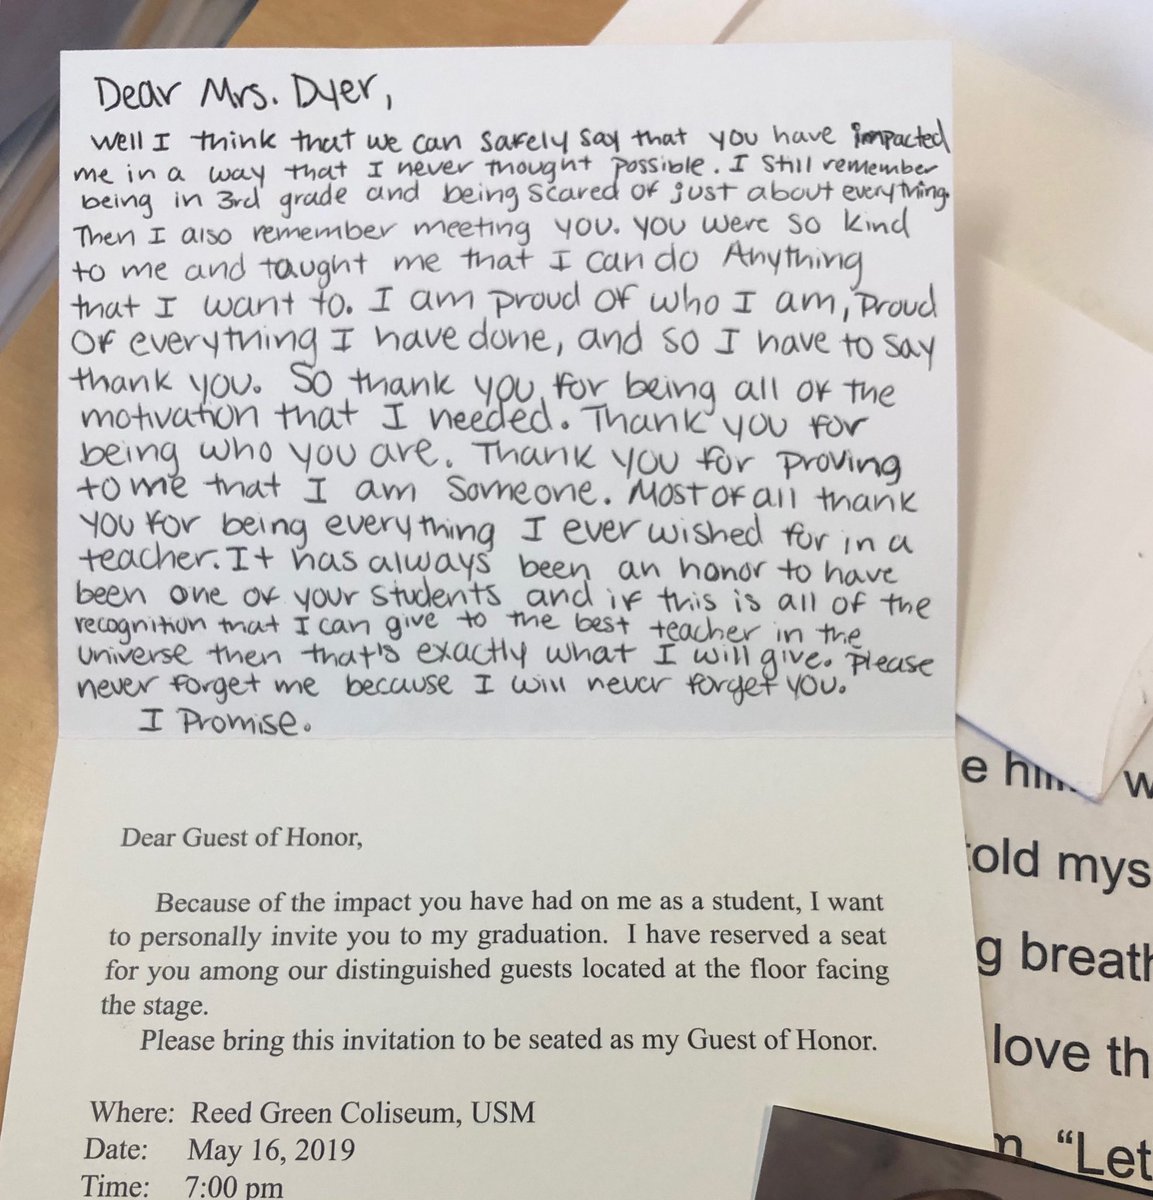 Dear Mrs. Dyer,
Well I think that we can safely say that you have impacted
me in a way that I never thought possible. I still remember
being in 3rd grade and being scared of just about everything.
Then I also remember meeting you. You were so kind
to me and taught me that I can do Anything
that I want to. I am proud of who I am, Proud
Of everything I have done, and so I have to say
thank you. So thank you for being all of the
motivation that I needed. Thank you for
being who you are. Thank you for proving
to me that I am someone. Most of all thank
you for being everything I ever wished for in a
teacher. It has always been an honor to have
been one of your students and if this is all of the
recognition that I can give to the best teacher in the
universe then that's exactly what I will give. Please
never forget me because I will never forget you.
I Promise.
Dear Guest of Honor,
Because of the impact you have had on me as a student, I want
to personally invite you to my graduation. I have reserved a seat
for you among our distinguished guests located at the floor facing
the stage.
Please bring this invitation to be seated as my Guest of Honor.
Where: Reed Green Coliseum, USM
Date: May 16, 2019
Time: 7:00 pm
told mys
g breath
love th
"Let